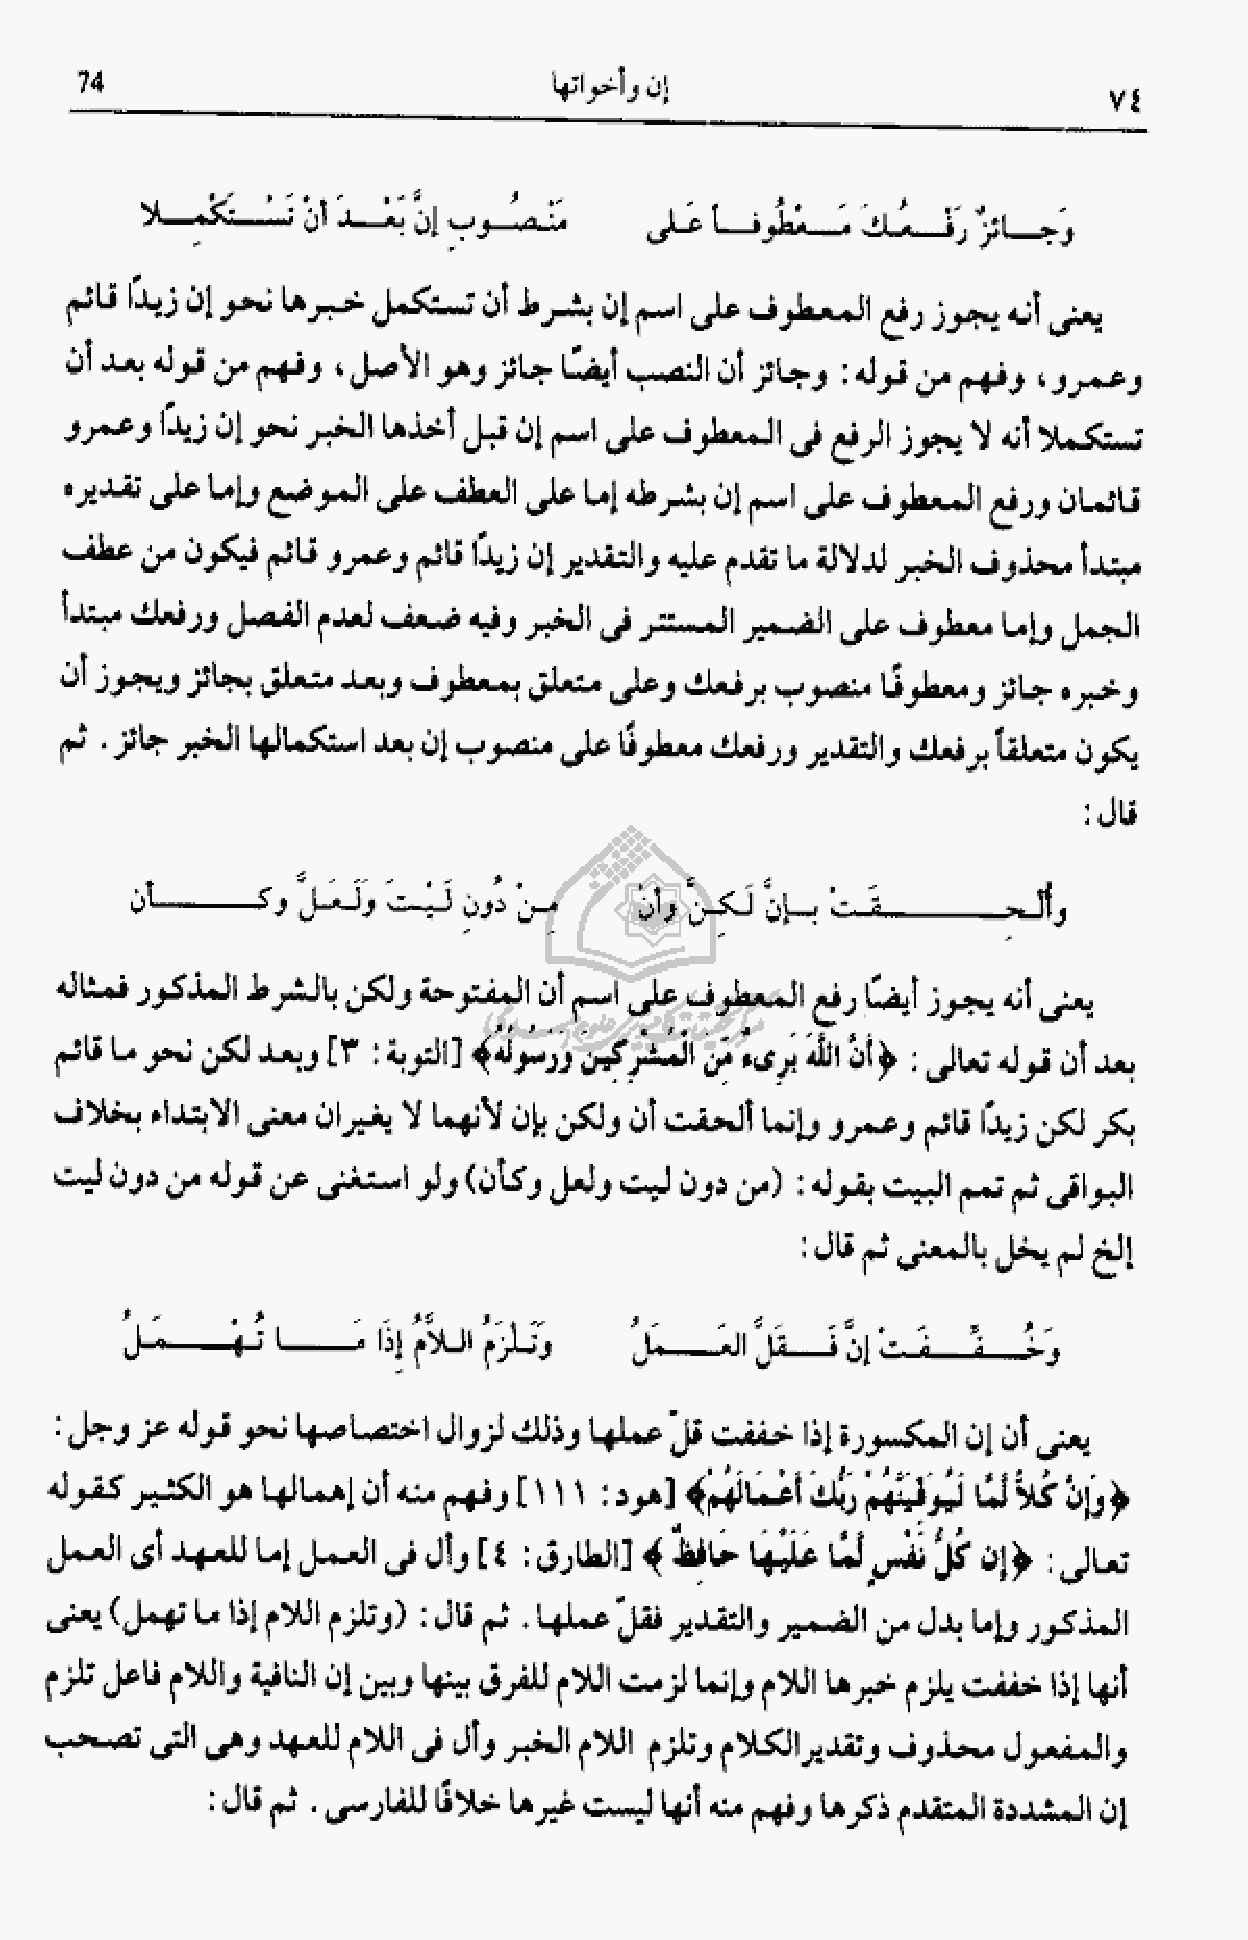 ٧٤ إن وأخواتها 74
وَجَائزٌ رَفْعُكَ مَعْطُوفاً عَلَى مَنْصُوبِ إنَّ بَعْدَ أنْ تَسْتَكْمِلا
يعنى أنه يجوز رفع المعطوف على اسم إن بشرط أن تستكمل خبرها نحو إن زيداً قائم
وعمرو ، وفهم من قوله : وجائز أن النصب أيضًا جائز وهو الأصل ، وفهم من قوله بعد أن
تستكملا أنه لا يجوز الرفع فى المعطوف على اسم إن قبل أخذها الخبر نحو إن زيداً وعمرو
قائمان ورفع المعطوف على اسم إن بشرطه إما على العطف على الموضع وإما على تقديره
مبتدأ محذوف الخبر لدلالة ما تقدم عليه والتقدير إن زيداً قائم وعمرو قائم فيكون من عطف
الجمل وإما معطوف على الضمير المستتر فى الخبر وفيه ضعف لعدم الفصل ورفعك مبتدأ
وخبره جائز ومعطوفًا منصوب برفعك وعلى متعلق بمعطوف وبعد متعلق بجائز ويجوز أن
يكون متعلقاً برفعك والتقدير ورفعك معطوفًا على منصوب إن بعد استكمالها الخبر جائز . ثم
قال :
وأُلْحِقَتْ بإنَّ لَكِنَّ وأنْ مِنْ دُونِ لَيْتَ وَلَعَلَّ وكأن
يعنى أنه يجوز أيضًا رفع المعطوف على اسم أن المفتوحة ولكن بالشرط المذكور فمثاله
بعد أن قوله تعالى : ﴿ أَنَّ اللَّهَ بَرِىءٌ مِّنَ الْمُشْرِكِينَ وَرَسُولُهُ﴾ [التوبة : ٣] وبعد لكن نحو ما قائم
بكر لكن زيداً قائم وعمرو وإنما ألحقت أن ولكن بإن لأنهما لا يغيران معنى الابتداء بخلاف
البواقى ثم تمم البيت بقوله : (من دون ليت ولعل وكأن) ولو استغنى عن قوله من دون ليت
إلخ لم يخل بالمعنى ثم قال :
وَخُفِّفَتْ إنَّ فَقَلَّ العَمَلُ وَتَلْزَمُ اللاَّمُ إِذَا مَا تُهْمَلُ
يعنى أن إن المكسورة إذا خففت قلّ عملها وذلك لزوال اختصاصها نحو قوله عز وجل :
﴿وَإِنْ كُلاًّ لَمَّا لَيُوَفِّيَنَّهُمْ رَبُّكَ أَعْمَالَهُمْ﴾ [هود : ١١١] وفهم منه أن إهمالها هو الكثير كقوله
تعالى : ﴿إن كُلُّ نَفْسٍ لَّمَّا عَلَيْهَا حَافِظٌ ﴾ [الطارق : ٤] وأل فى العمل إما للعهد أى العمل
المذكور وإما بدل من الضمير والتقدير فقلّ عملها . ثم قال : (وتلزم اللام إذا ما تهمل) يعنى
أنها إذا خففت يلزم خبرها اللام وإنما لزمت اللام للفرق بينها وبين إن النافية واللام فاعل تلزم
والمفعول محذوف وتقدير الكلام وتلزم اللام الخبر وأل فى اللام للعهد وهى التى تصحب
إن المشددة المتقدم ذكرها وفهم منه أنها ليست غيرها خلافًا للفارسى . ثم قال :